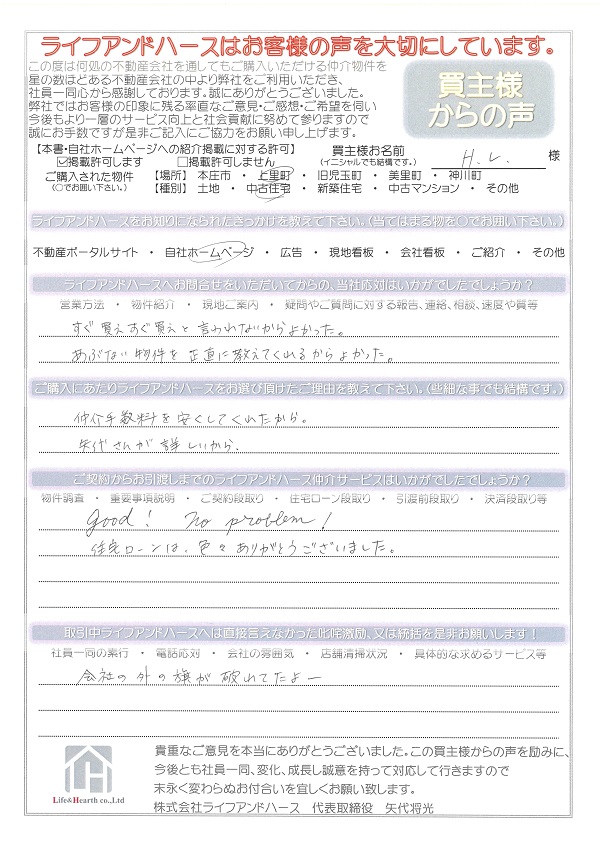 ライフアンドハースはお客様の声を大切にしています。
この度は何処の不動産会社を通してもご購入いただける仲介物件を
星の数ほどある不動産会社の中より弊社をご利用いただき、
社員一同心から感謝しております。誠にありがとうございました。
弊社ではお客様の印象に残る率直なご意見・ご感想・ご希望を伺い
今後もより一層のサービス向上と社会貢献に努めて参りますので
誠にお手数ですが是非ご記入にご協力をお願い申し上げます。
買主様
からの声
【本書・自社ホームページへの紹介掲載に対する許可】
☑掲載許可します □掲載許可しません
買主様お名前
(イニシャルでも結構です。)
H.L. 様
ご購入された物件 【場所】 本庄市 ・ 上里町 ・ 旧児玉町 ・ 美里町 ・ 神川町
(○でお囲い下さい。) 【種別】 土地 ・ 中古住宅 ・ 新築住宅 ・ 中古マンション ・ その他
ライフアンドハースをお知りになられたきっかけを教えて下さい。(当てはまる物を○でお囲い下さい。)
不動産ポータルサイト ・ 自社ホームページ ・ 広告 ・ 現地看板 ・ 会社看板 ・ ご紹介 ・ その他
ライフアンドハースへお問合せをいただいてからの、当社応対はいかがでしたでしょうか?
営業方法 ・ 物件紹介 ・ 現地ご案内 ・ 疑問やご質問に対する報告、連絡、相談、速度や質等
すぐ買えすぐ買えと言われないからよかった。
あぶない物件を正直に教えてくれるからよかった。
ご購入にあたりライフアンドハースをお選び頂けたご理由を教えて下さい。(些細な事でも結構です。)
仲介手数料を安くしてくれたから。
矢代さんが詳しいから、
ご契約からお引渡しまでのライフアンドハース仲介サービスはいかがでしたでしょうか?
物件調査 ・ 重要事項説明 ・ ご契約段取り ・ 住宅ローン段取り ・ 引渡前段取り ・ 決済段取り等
good! no problem!
住宅ローンは、色々ありがとうございました。
取引中ライフアンドハースへは直接言えなかった叱咤激励、又は統括を是非お願いします!
社員一同の素行 ・ 電話応対 ・ 会社の雰囲気 ・ 店舗清掃状況 ・ 具体的な求めるサービス等
会社の外の旗が破れてたよー
貴重なご意見を本当にありがとうございました。この買主様からの声を励みに、
今後とも社員一同、変化、成長し誠意を持って対応して行きますので
末永く変わらぬお付合いを宜しくお願い致します。
株式会社ライフアンドハース 代表取締役 矢代将光
Life&Hearth co.,Ltd